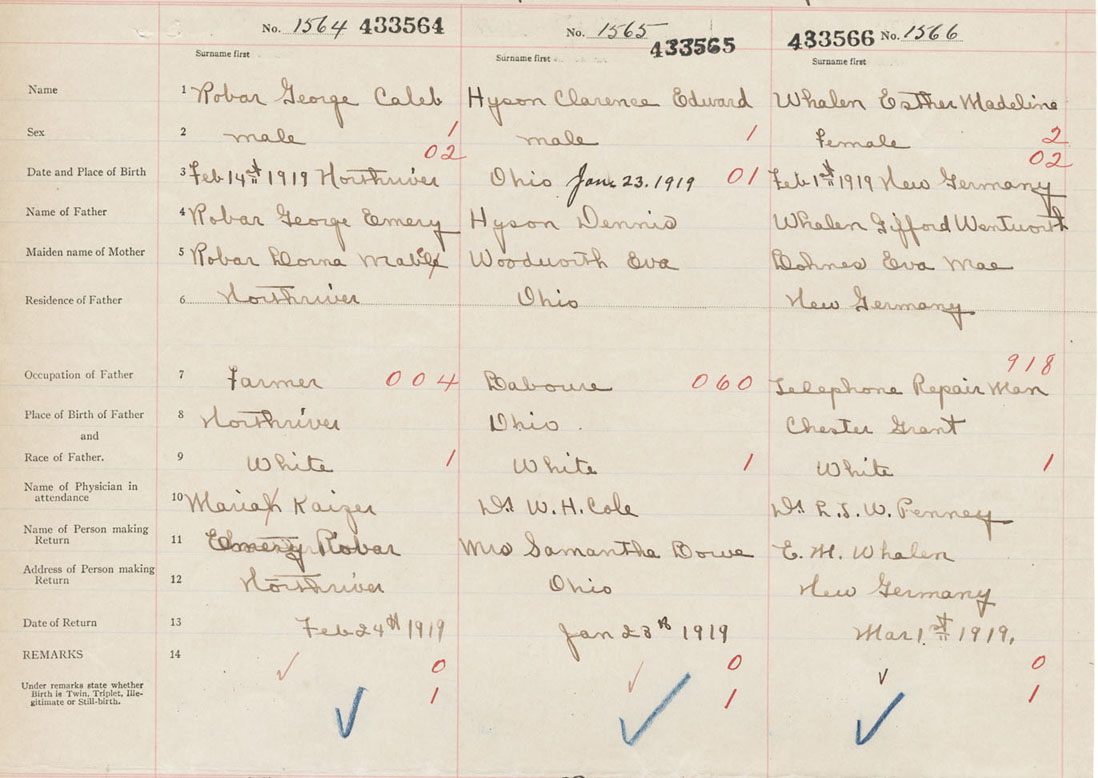 No. 1564 433564 No. 1565 433565 433566 No. 1566
Surname first Surname first Surname first
Name 1 Robar George Caleb Hyson Clarence Edward Whalen Esther Madeline
Sex 2 male 1 male 1 Female 2
02 02
Date and Place of Birth 3 Feb 14th 1919 Northriver Ohio Jan. 23. 1919 01 Feb 1st 1919 New Germany
Name of Father 4 Robar George Emery Hyson Dennis Whalen Gifford Wentworth
Maiden name of Mother 5 Robar Dorna Woodworth Eva Eva Mae
Residence of Father 6 Northriver Ohio New Germany
918
Occupation of Father 7 Farmer 004 060 Telephone Repair Man
Place of Birth of Father 8 Northriver Ohio. Chester Grant
and
Race of Father. 9 White 1 White 1 White 1
Name of Physician in
attendance 10 Maria Kaizer Dr W. H. Cole Dr Penney
Name of Person making
Return 11 Emery Robar Mrs Samantha E. M. Whalen
Address of Person making
Return 12 Northriver Ohio New Germany
Date of Return 13 Feb 24th 1919 Jan 23rd 1919 Mar 1st 1919.
REMARKS 14 0 0 0
Under remarks state whether
Birth is Twin, Triplet, Ille-
gitimate or Still-birth. 1 1 1